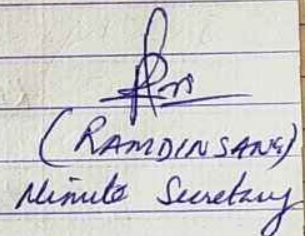 (RAMDINSANG)
Minute Secretary